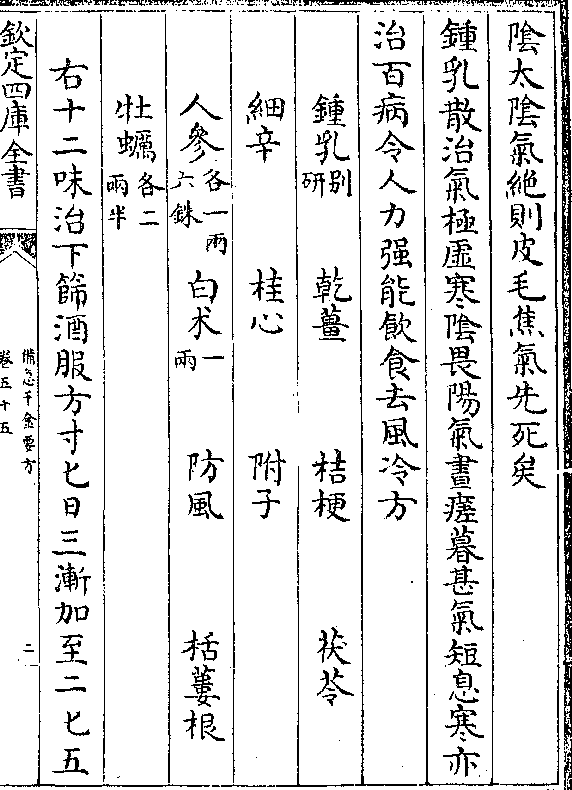 陰太陰氣絶則皮毛焦氣先死矣
鍾乳散治氣極虛寒陰畏陽氣晝瘥暮甚氣短息寒亦
治百病令人力强能飲食去風冷方
鍾乳别研 乾薑 桔梗 茯苓
細辛 桂心 附子
人參各一兩六銖 白术一兩 防風 栝蔞根
牡蠣各二兩半
右十二味治下篩酒服方寸匕日三漸加至二匕五
欽定四庫全書
備急千金要方
卷五十五
二